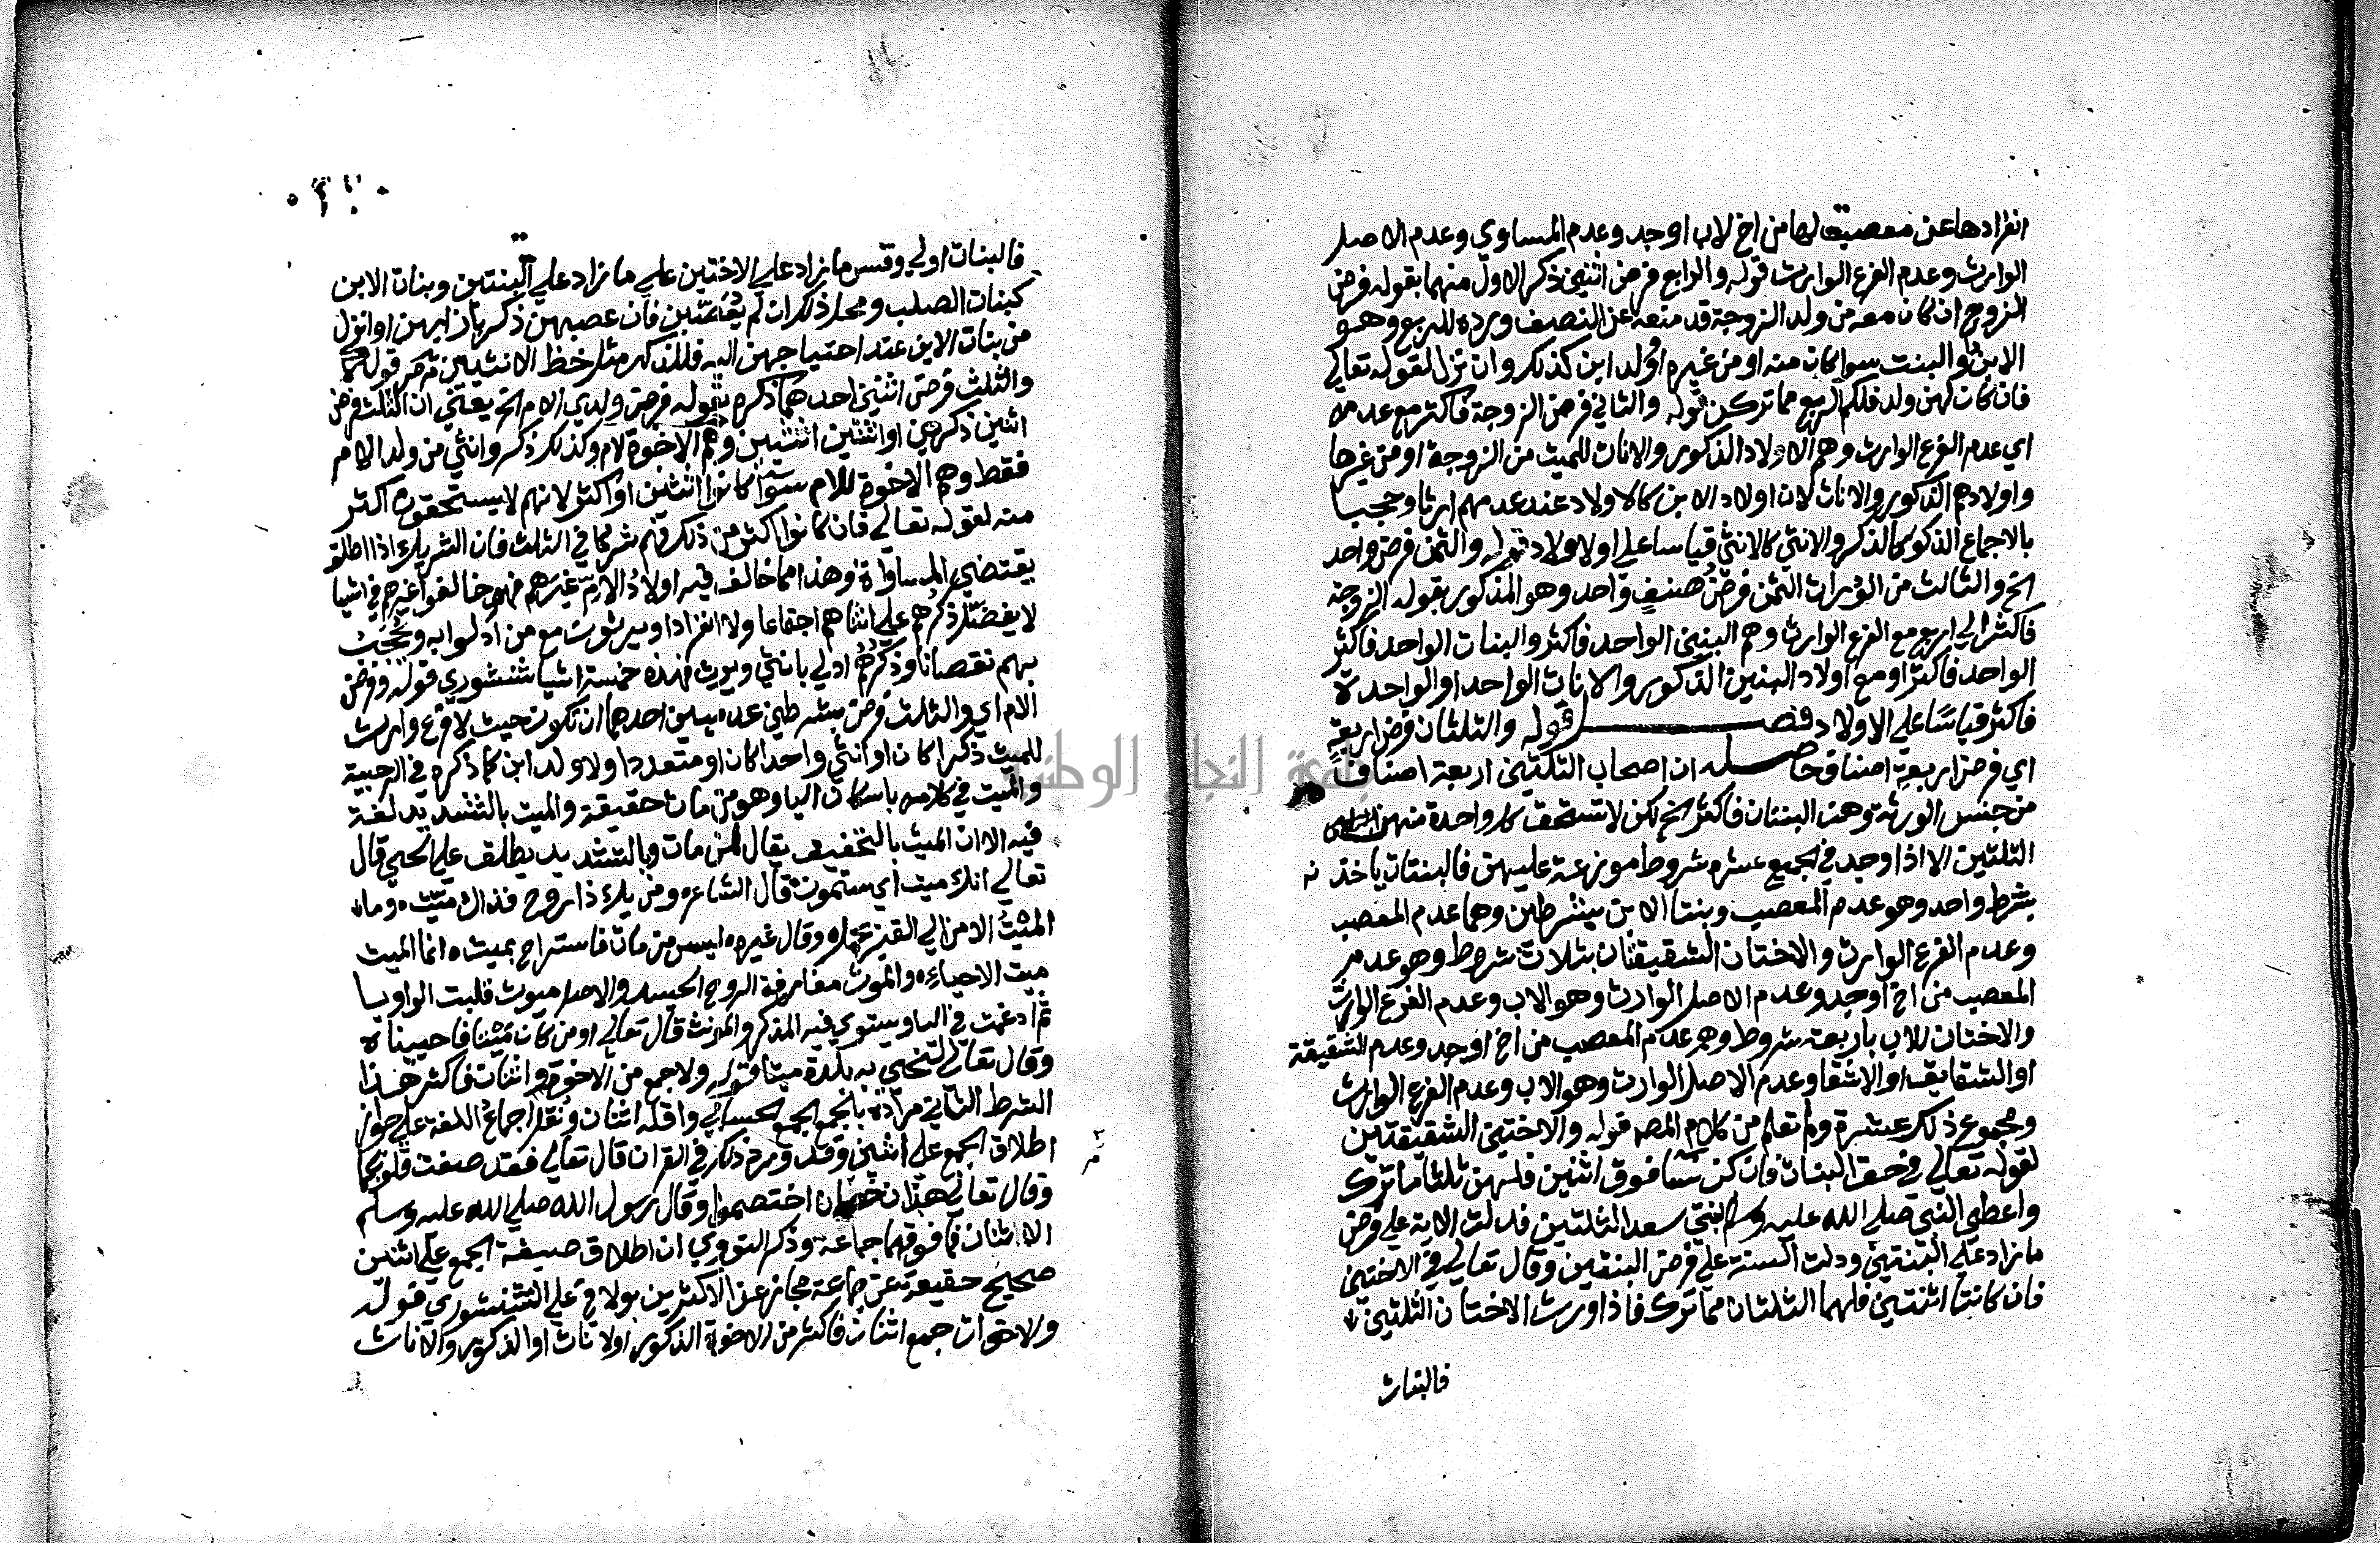 انفرادها عن معصب لها من اخ لاب اوجد وعدم المساوي وعدم الاصل
الوارث وعدم الفرع الوارث قوله والرابع فرض اثنين ذكر الاول منهما بقوله فرض
الزوج ان كان معه من ولد الزوجة قد منعه عن النصف ورده للربع وهو
الابن او البنت سوا كان منه او من غيره او ولد ابن كذلك وان نزل لقوله تعالي
فان كان لهن ولد فلكم الربع مما تركن قوله والثاني فرض الزوجة فاكثر مع عدم
اي عدم الفرع الوارث وهم الاولاد الذكور والاناث للميت من الزوجة او من غيرها
واولادهم الذكور والاناث لان اولاد الابن كالاولاد عند عدمهم ارثا وحجبا
بالاجماع الذكر كالذكر والانثي كالانثي قياسا علي الاولاد قوله والثمن فرض واحد
الخ والثالث من الوراث الثمن فرض صنف واحد وهو المذكور بقوله الزوجة
فاكثر الي اربع مع الفرع الوارث وهم البنين الواحد فاكثر والبنات الواحد فاكثر
الواحد فاكثر او مع اولاد البنين الذكور والاناث الواحد او الواحدة
فاكثر قياسًا علي الاولاد فصل قوله والثلثان فرض اربعة
اي فرض اربعة اصناف حاصله ان اصحاب الثلثين اربعة اصناف
من جنس الورثة وهن البنتان فاكثر الخ لكن لا تستحق كل واحدة منهن
الثلثين الا اذا وجد في الجميع عشره شروط موزعة عليهن فالبنتان ياخذنه
بشرط واحد وهو عدم المعصب وبنتا الابن بشرطين وهما عدم المعصب
وعدم الفرع الوارث والاختان الشقيقتان بثلاث شروط وهو عدم
المعصب من اخ اوجد وعدم الاصل الوارث وهو الاب وعدم الفرع الوارث
والاختان للاب باربعة شروط وهو عدم المعصب من اخ اوجد وعدم الشقيقة
او الشقايق او الاشقا وعدم الاصل الوارث وهو الاب وعدم الفرع الوارث
ومجموع ذلك عشرة ولم تعلم من كلام المص قوله والاختين الشقيقتين
لقوله تعالي في حق البنات فان كن نسا فوق اثنتين فلهن ثلثا ما ترك
واعطي النبي صلي الله عليه وسلم بنتي سعد الثلثين فدلت الاية علي فرض
ما زاد علي البنتين ودلت السنة علي فرض البنتين وقال تعالي في الاختين
فان كانتا اثنتين فلهما الثلثان مما ترك فاذا ورث الاختان الثلثين
فالبنات
فالبنات اولي وقس ما زاد علي الاختين علي ما زاد علي البنتين وبنات الابن
كبنات الصلب ومحل ذلك ان لم يعصبن فان عصبهن ذكر بان ابهن او انزل
من بنات الابن عند احتياجهن اليه فللذكر مثل حظ الانثيين قوله
والثلث فرض اثنين احدهما ذكره بقوله فرض ولدي الام الخ يعني ان الثلث فرض
اثنين ذكرين او انثيين وهم الاخوة لام وكذلك ذكر وانثي من ولد الام
فقط وهم الاخوة للام سوا كانوا اثنين او اكثر لانهم لا يستحقون اكثر
منه لقوله تعالي فان كانوا اكثر من ذلك فهم شركا في الثلث فان الشريك اذا اطلق
يقتضي المساواة وهذا مما خالف فيه اولاد الام غيرهم فهم خالفوا غيرهم في اشيا
لا يفضل ذكرهم علي انثاهم اجتماعا ولا انفرادا ويرثون مع من ادلوا به ويحجب
بهم نقصانا وذكرهم ادلي بانثي ويرث فهذه خمسة اشيا شنشوري قوله وفرض
الام اي والثلث فرض بشرطين عدميين احدهما ان تكون حيث لا فرع وارث
للميت ذكرا كان او انثي واحدا كان او متعددا ولا ولد ابن كما ذكره في الرحبية
والميت في كلامه باسكان اليا وهو من مات حقيقة والميت بالتشديد لغة
فيه الا ان الميت بالتخفيف يقال لمن مات وبالتشديد يطلق علي الحي قال
تعالي انك ميت اي ستموت قال الشاعر ومن يك ذا روح فذاك ميت وما
الميت الا من الي القبر يحمل وقال غيره ليس من مات فاستراح بميت انما الميت
ميت الاحياء والموت مفارقة الروح الجسد والاصل ميوت قلبت الواو يا
ثم ادغمت في اليا ويستوي فيه المذكر والمونث قال تعالي او من كان ميتا فاحييناه
وقال تعالي لنحيي به بلدة ميتا قوله ولا جمع من الاخوة اثنان فاكثر هذا
الشرط الثاني مراده بالجمع الجمع الحسابي واقله اثنان ونقل اجماع اللغة علي جواز
اطلاق الجمع علي اثنين وقد ورد ذلك في القران قال تعالي فقد صغت قلوبكما
وقال تعالي هذان خصمان اختصموا وقال رسول الله صلي الله عليه وسلم
الاثنان فما فوقهما جماعة وذكر النووي ان اطلاق صيغة الجمع علي اثنين
صحيح حقيقة عن جماعة مجاز عن الاكثرين بولاقي علي الشنشوري قوله
والاخوات جمع اثنان فاكثر من الاخوة الذكور او الاناث او الذكور والاناث